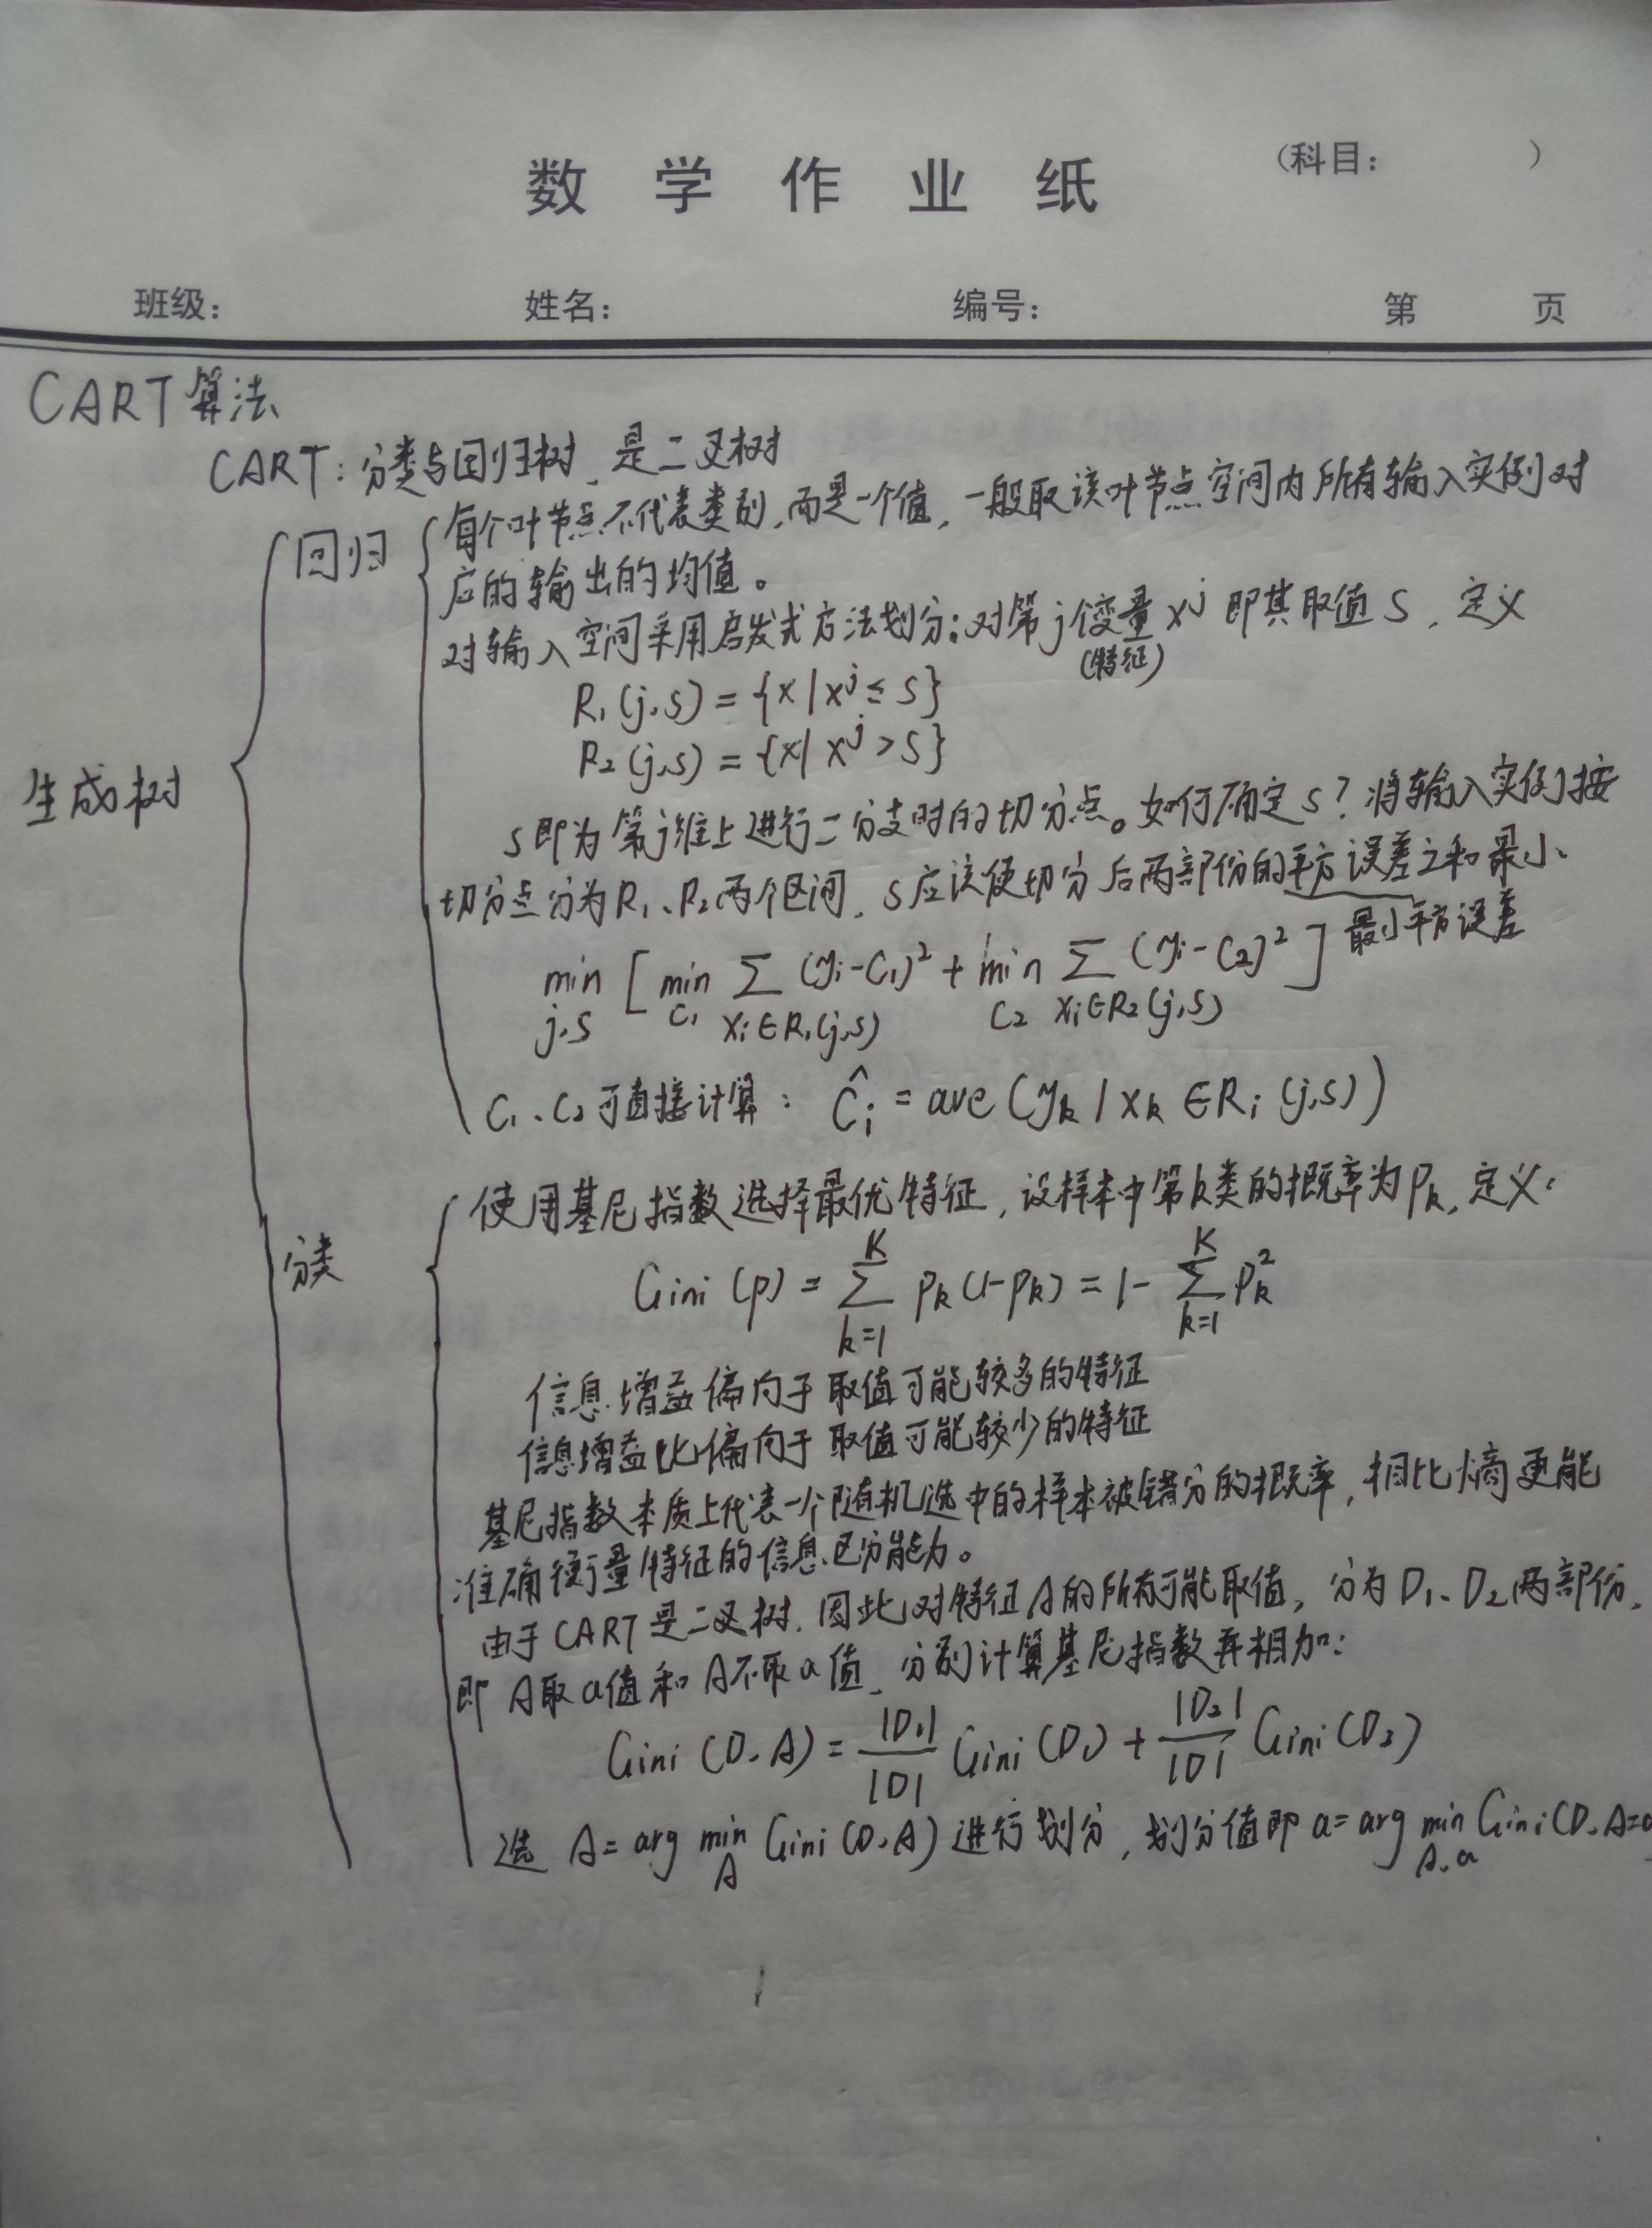 (科目: )
数学作业纸
班级: 姓名: 编号: 第 页
CART算法
CART: 分类与回归树、是二叉树
生成树
回归
每个叶节点不代表类别,而是一个值,一般取该叶节点空间内所有输入实例对
应的输出的均值。
对输入空间采用启发式方法划分:对第j个变量 x^j 即其取值 S、定义
(特征)
R₁(j,s) = {x|x^j ≤ s}
R₂(j,s) = {x|x^j > s}
s即为第j维上进行二分支时的切分点。如何确定s?将输入实例按
切分点分为R₁、R₂两个区间、s应该使切分后两部份的平方误差之和最小、
最小平方误差
min_{j,s} [ min_{C₁} ∑_{xᵢ∈R₁(j,s)} (yᵢ-C₁)² + min_{C₂} ∑_{xᵢ∈R₂(j,s)} (yᵢ-C₂)² ]
C₁、C₂可直接计算: Ĉᵢ = ave(y_k | x_k ∈ Rᵢ(j,s))
分类
使用基尼指数选择最优特征,设样本中第k类的概率为P_k,定义:
Gini(p) = ∑_{k=1}^{K} p_k(1-p_k) = 1 - ∑_{k=1}^{K} p_k²
信息增益偏向于取值可能较多的特征
信息增益比偏向于取值可能较少的特征
基尼指数本质上代表一个随机选中的样本被错分的概率,相比熵更能
准确衡量特征的信息区分能力。
由于CART是二叉树.因此对特征A的所有可能取值,分为D₁、D₂两部份、
即A取a值和A不取a值、分别计算基尼指数并相加:
Gini(D,A) = |D₁|/|D| Gini(D₁) + |D₂|/|D| Gini(D₂)
选 A = arg min_A Gini(D,A) 进行划分,划分值即 a = arg min_{A,a} Gini(D,A=a